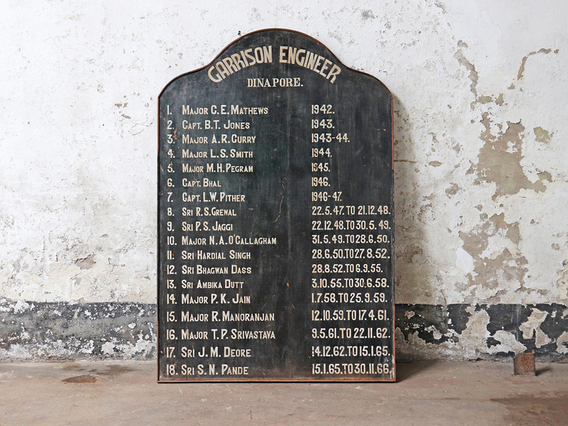 GARRISON ENGINEER
DINAPORE.
1. MAJOR C.E. MATHEWS 1942.
2. CAPT. B.T. JONES 1943.
3. MAJOR A.R. CURRY 1943-44.
4. MAJOR L.S. SMITH 1944.
5. MAJOR M.H. PEGRAM 1945.
6. CAPT. BHAL 1946.
7. CAPT. L.W. PITHER 1946-47.
8. SRI R.S. GREWAL 22.5.47. TO 21.12.48.
9. SRI P.S. JAGGI 22.12.48. TO 30.5.49.
10. MAJOR N.A. O'CALLAGHAM 31.5.49. TO 28.6.50.
11. SRI HARDIAL SINGH 28.6.50. TO 27.8.52.
12. SRI BHAGWAN DASS 28.8.52. TO 6.9.55.
13. SRI AMBIKA DUTT 3.10.55. TO 30.6.58.
14. MAJOR P.K. JAIN 1.7.58. TO 25.9.59.
15. MAJOR R. MANORANJAN 12.10.59. TO 17.4.61.
16. MAJOR T.P. SRIVASTAVA 9.5.61. TO 22.11.62.
17. SRI J.M. DEORE 14.12.62. TO 15.1.65.
18. SRI S.N. PANDE 15.1.65. TO 30.11.66.